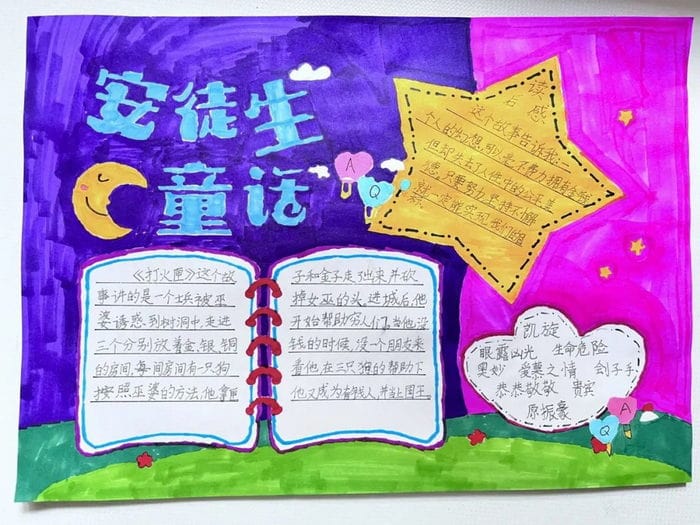 安徒生
童话
读
后感
这个故事告诉我:一
个人的幻想,
就一定能实现我们的
A
Q
《打火匣》这个故
事讲的是一个士兵被巫
婆诱惑,到树洞中,走进
三个分别放着金、银、铜
的房间,每间房间有一只狗
按照巫婆的方法,他拿
子和金子走了出来并砍
掉女巫的头,进城后,他
开始帮助穷人们,当他没
钱的时候,没一个朋友来
看他,在三只狗的帮助下
他又成为有钱人,并当上国王。
凯旋
眼露凶光 生命危险
奥妙 爱慕之情 刽子手
恭恭敬敬 贵宾
原振豪
A
Q